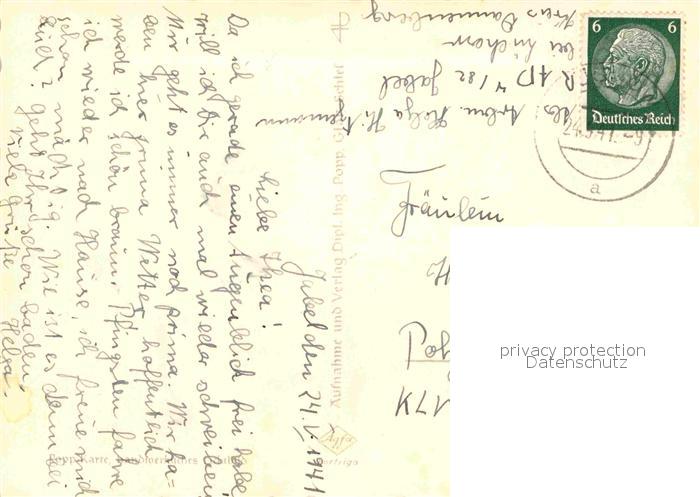 Gabel den 24.V.1941
Liebe Thea!
Da ich gerade einen Augenblick frei habe,
will ich Dir auch mal wieder schreiben.
Mir geht es immer noch prima. Wir ha-
ben hier prima Wetter, hoffentlich
werde ich schön braun. Pfingsten fahre
ich wieder nach Hause, ich freue mich
schon mächtig. Wie ist es denn bei
Euch? Geht Ihr schon baden?
Viele Grüße
Helga.
Helga
R.A.D. 4/82 Gabel
bei Lüchow
Kreis Dannenberg
Popp-Karte,
Aufnahme und Verlag Dipl. Ing. Popp
Agfa
Portriga
6 6
Deutsches Reich
24.5.41.-9
a
Fräulein
privacy protection
Datenschutz